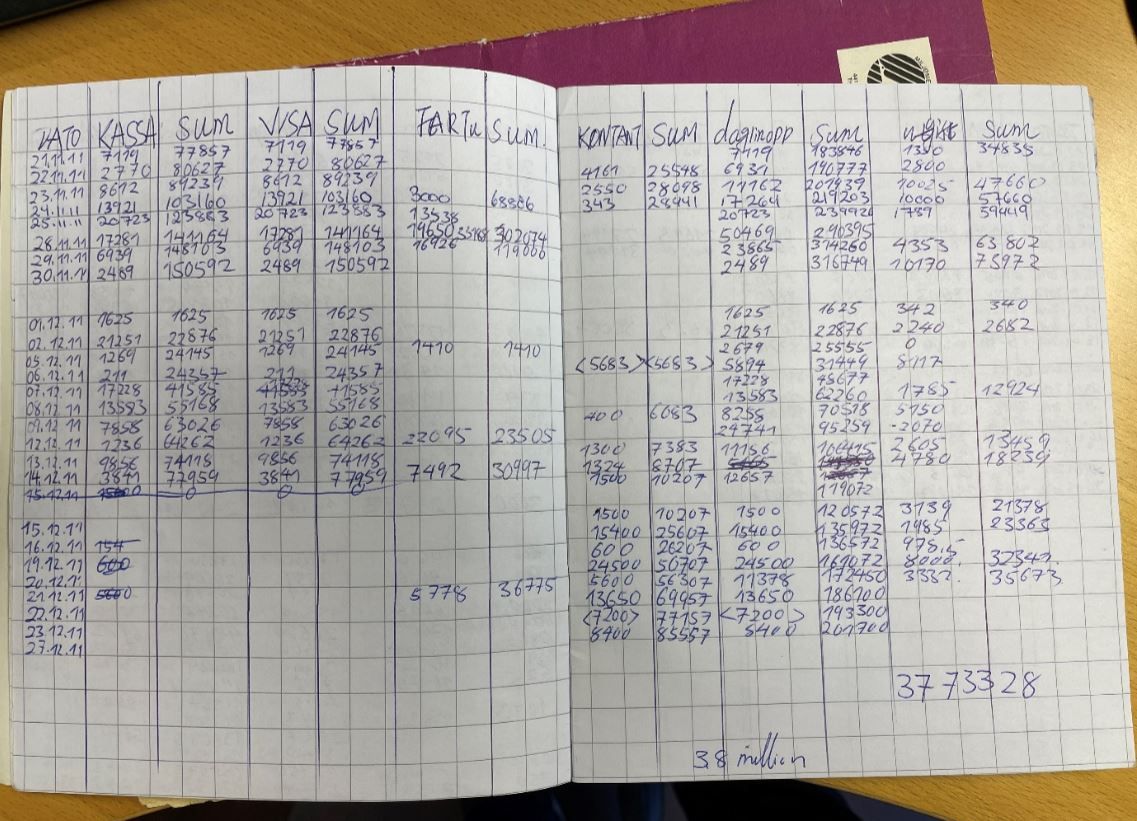 DATO KASSA SUM VISA SUM FAKTU SUM.
21.11.11 7119 77857 7119 77857
22.11.11 2770 80627 2770 80627
23.11.11 8612 89239 8612 89239
24.11.11 13921 103160 13921 103160 3000 68886
25.11.11 20723 123883 20723 123883 13538
28.11.11 17281 141164 17281 141164
29.11.11 6939 148103 6939 148103 16926
30.11.11 2489 150592 2489 150592
01.12.11 1625 1625 1625 1625
02.12.11 21251 22876 21251 22876
05.12.11 1269 24145 1269 24145 1410 1410
06.12.11 211 24357 211 24357
07.12.11 17228 41585 41585
08.12.11 13583 55168 13583 55168
09.12.11 7858 63026 7858 63026
12.12.11 1236 64262 1236 64262 22095 23505
13.12.11 9856 74118 9856 74118
14.12.11 3841 77959 3841 77959 7492 30997
15.12.11 0 0 0
15.12.11
16.12.11 154
19.12.11 600
20.12.11
21.12.11 5600 5778 36775
22.12.11
23.12.11
27.12.11
KONTANT SUM dagsinopp SUM SUM
7119 183846 1350 34835
4161 25548 6931 190777 2800
2550 28098 11162 201939 10025 47660
343 28441 17264 219203 10000 57660
20723 239926 1789 59449
50469 290395
23865 314260 4353 63802
2489 316749 10170 73972
1625 1625 342 340
21251 22876 2240 2682
2679 25555 0
<5683> <5683> 5894 31449 8117
17228 48677
13583 62260 1785 12924
400 6083 8258 70518 5150
24741 95259 -2070
1300 7383 11156 106415 2605 13459
1324 8707 4780 18239
1500 10207 12657
119072
1500 10207 1500 120572 3139 21378
15400 25607 15400 135972 1985 23363
600 26207 600 136572 978,5
24500 50707 24500 161072 8000. 32342
5600 56307 11378 172450 3332. 35673
13650 69957 13650 186100
<7200> 77157 <7200> 193300
8400 85557 8400 201700
3773328
3.8 million